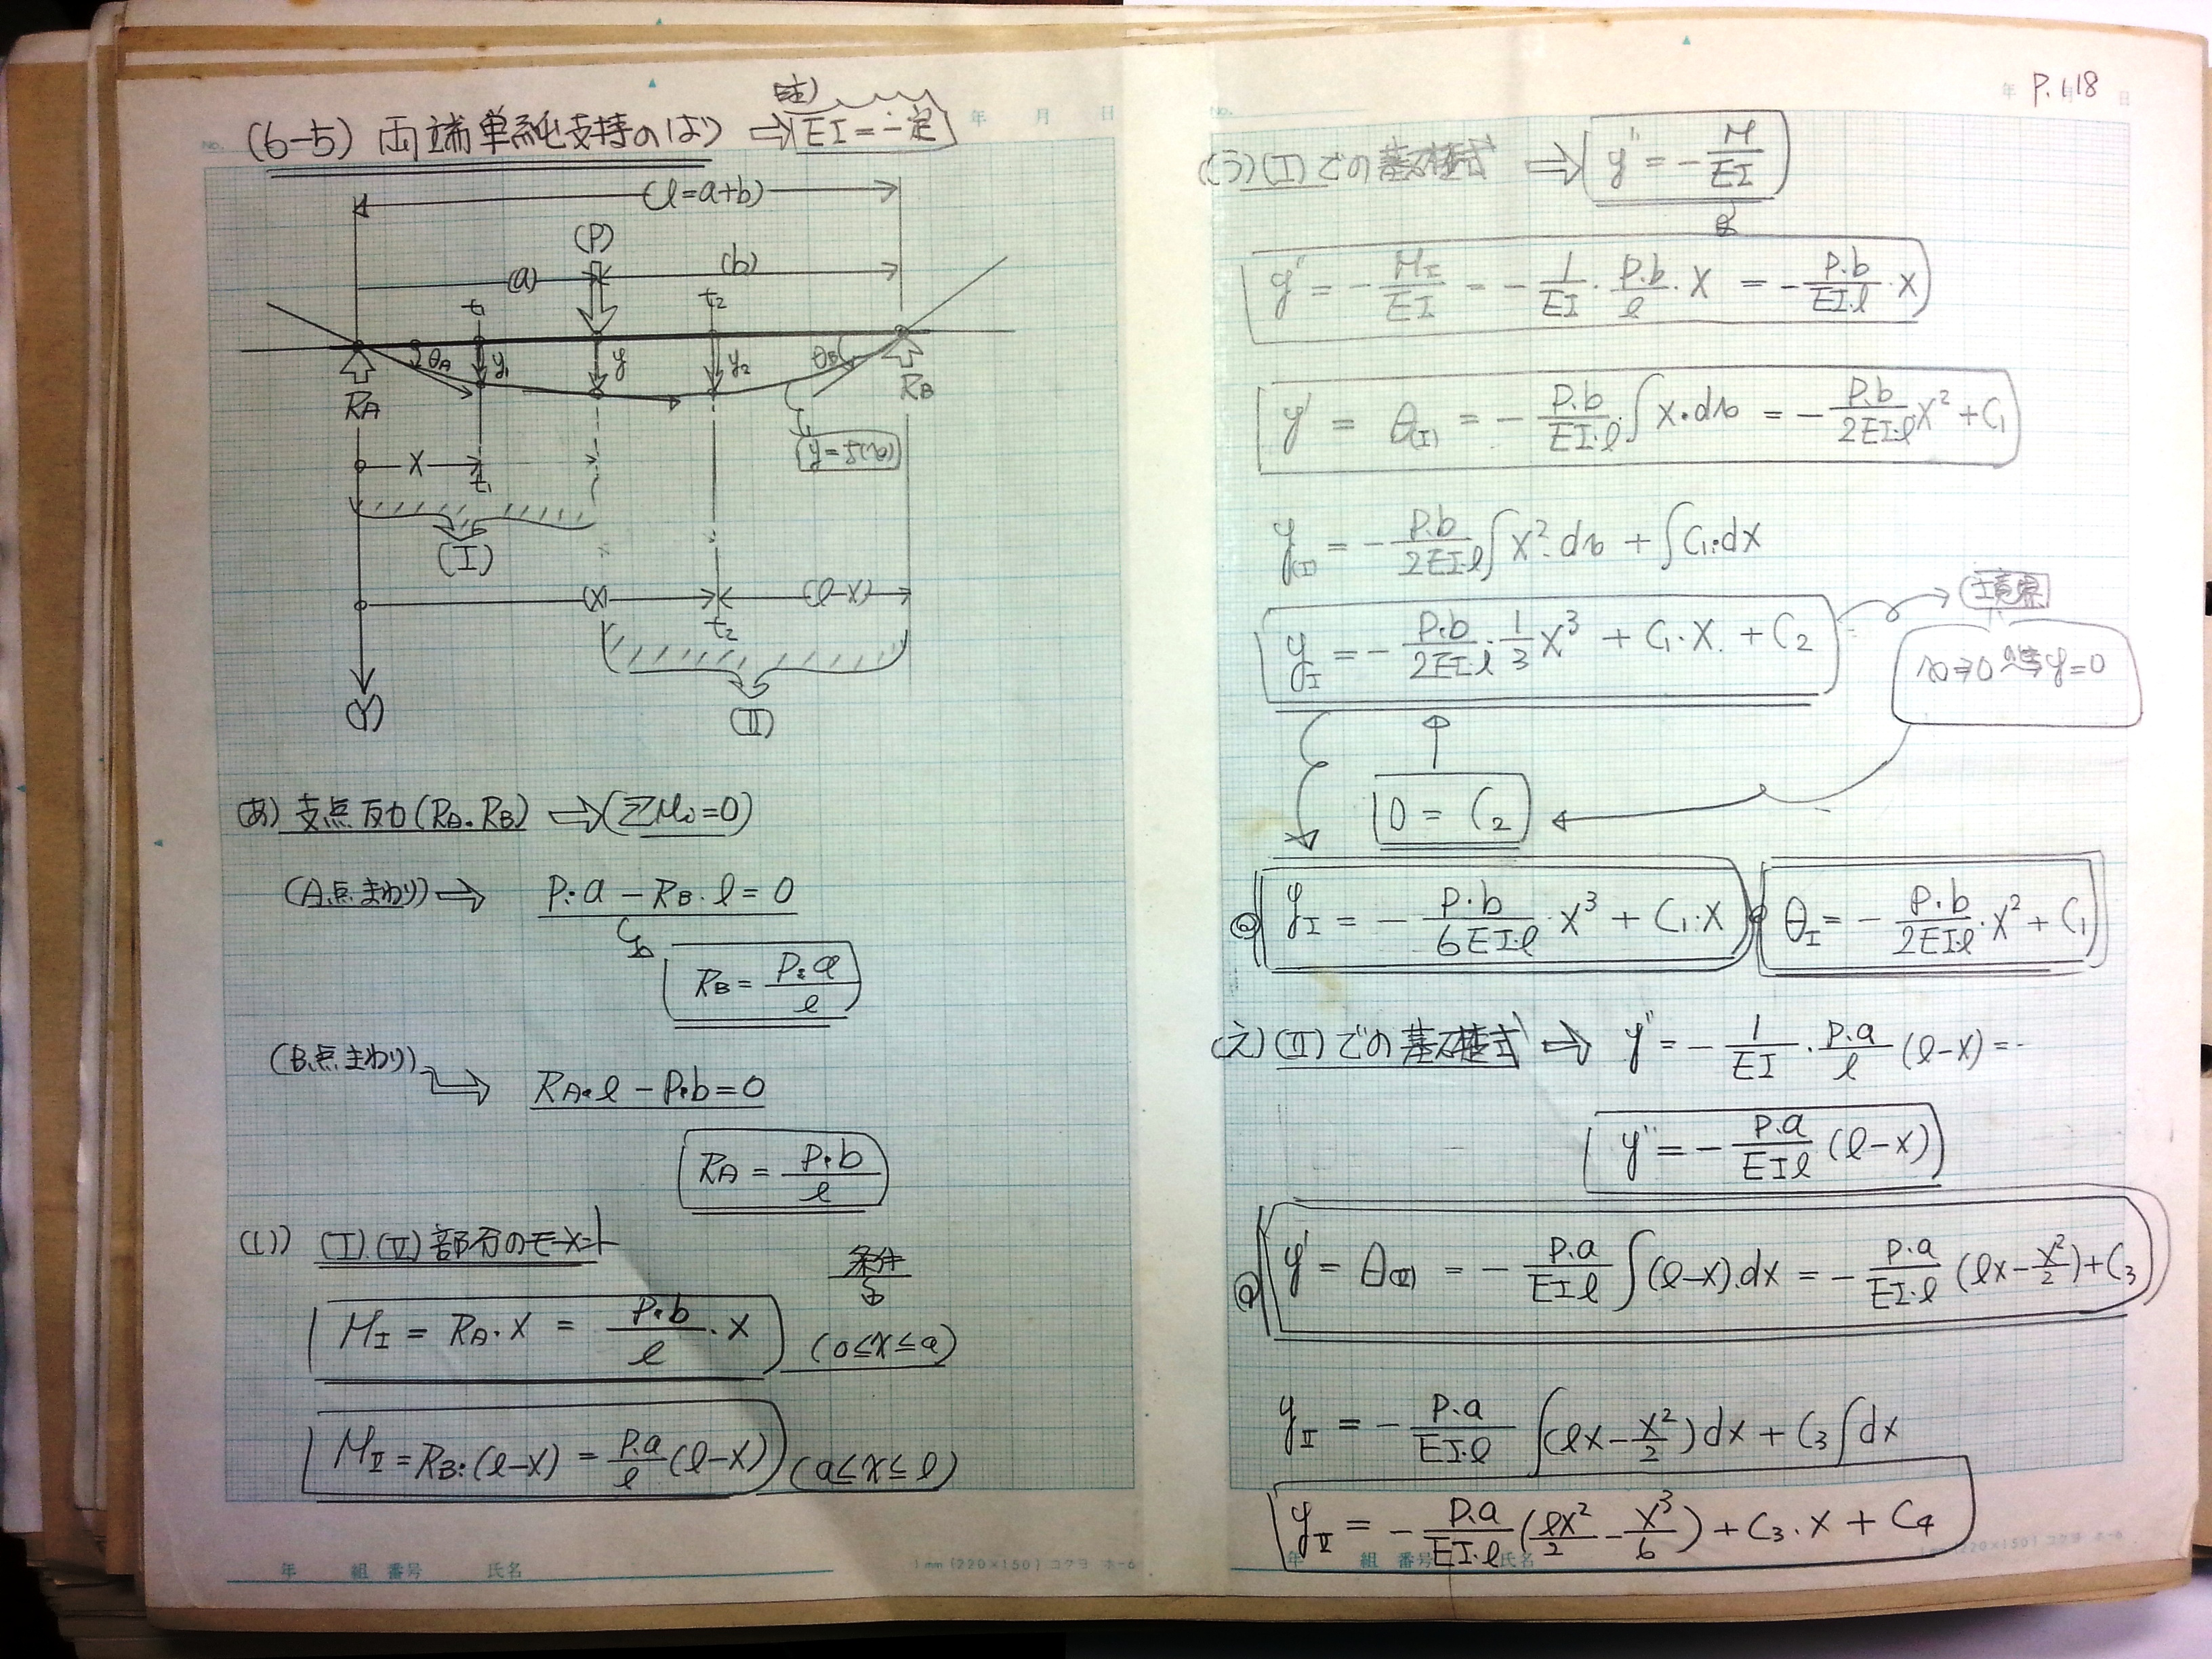 (6-5) 両端単純支持のはり ⇒ EI=一定
註)
(l=a+b)
(P)
(a)
(b)
t₁
t₂
θA
y₁
y
y₂
θB
RA
RB
y=f(x)
x
t₁
(I)
(x)
(l-x)
t₂
(II)
(y)
(あ) 支点反力(RA.RB) ⇒ (ΣMi=0)
(A点まわり) ⇒ P·a − RB·l = 0
RB = P·a/l
(B点まわり) ⇒ RA·l − P·b = 0
RA = P·b/l
(い) (I).(II)部分のモーメント
条件
MI = RA·x = P·b/l · x (0≤x≤a)
MII = RB·(l-x) = P.a/l (l-x) (a≤x≤l)
年 組 番号 氏名
1mm (220×150) コクヨ ホ-6
No. 年 月 日
P.118
(う) (I)での基礎式 ⇒ y'' = − M/EI
y'' = − MI/EI = − 1/EI · P.b/l · x = − P.b/EI.l · x
y' = θ(I) = − P.b/EI.l ∫x·dx = − P.b/2EI.l x² + C₁
y(I) = − P.b/2EI.l ∫x²·dx + ∫C₁·dx
yI = − P·b/2EI·l · 1/3 x³ + C₁·x + C₂
境界
x⇒0の時y=0
0 = C₂
yI = − P·b/6EI·l · x³ + C₁·x
θI = − P.b/2EI.l · x² + C₁
(え) (II)での基礎式 ⇒ y'' = − 1/EI · P.a/l (l-x) = -
y'' = − P.a/EIl (l-x)
y' = θ(II) = − P.a/EI.l ∫(l-x).dx = − P.a/EI.l (lx − x²/2) + C₃
yII = − P.a/EI.l ∫(lx − x²/2)dx + C₃∫dx
yII = − P.a/EI.l (lx²/2 − x³/6) + C₃·x + C₄
年 組 番号 氏名